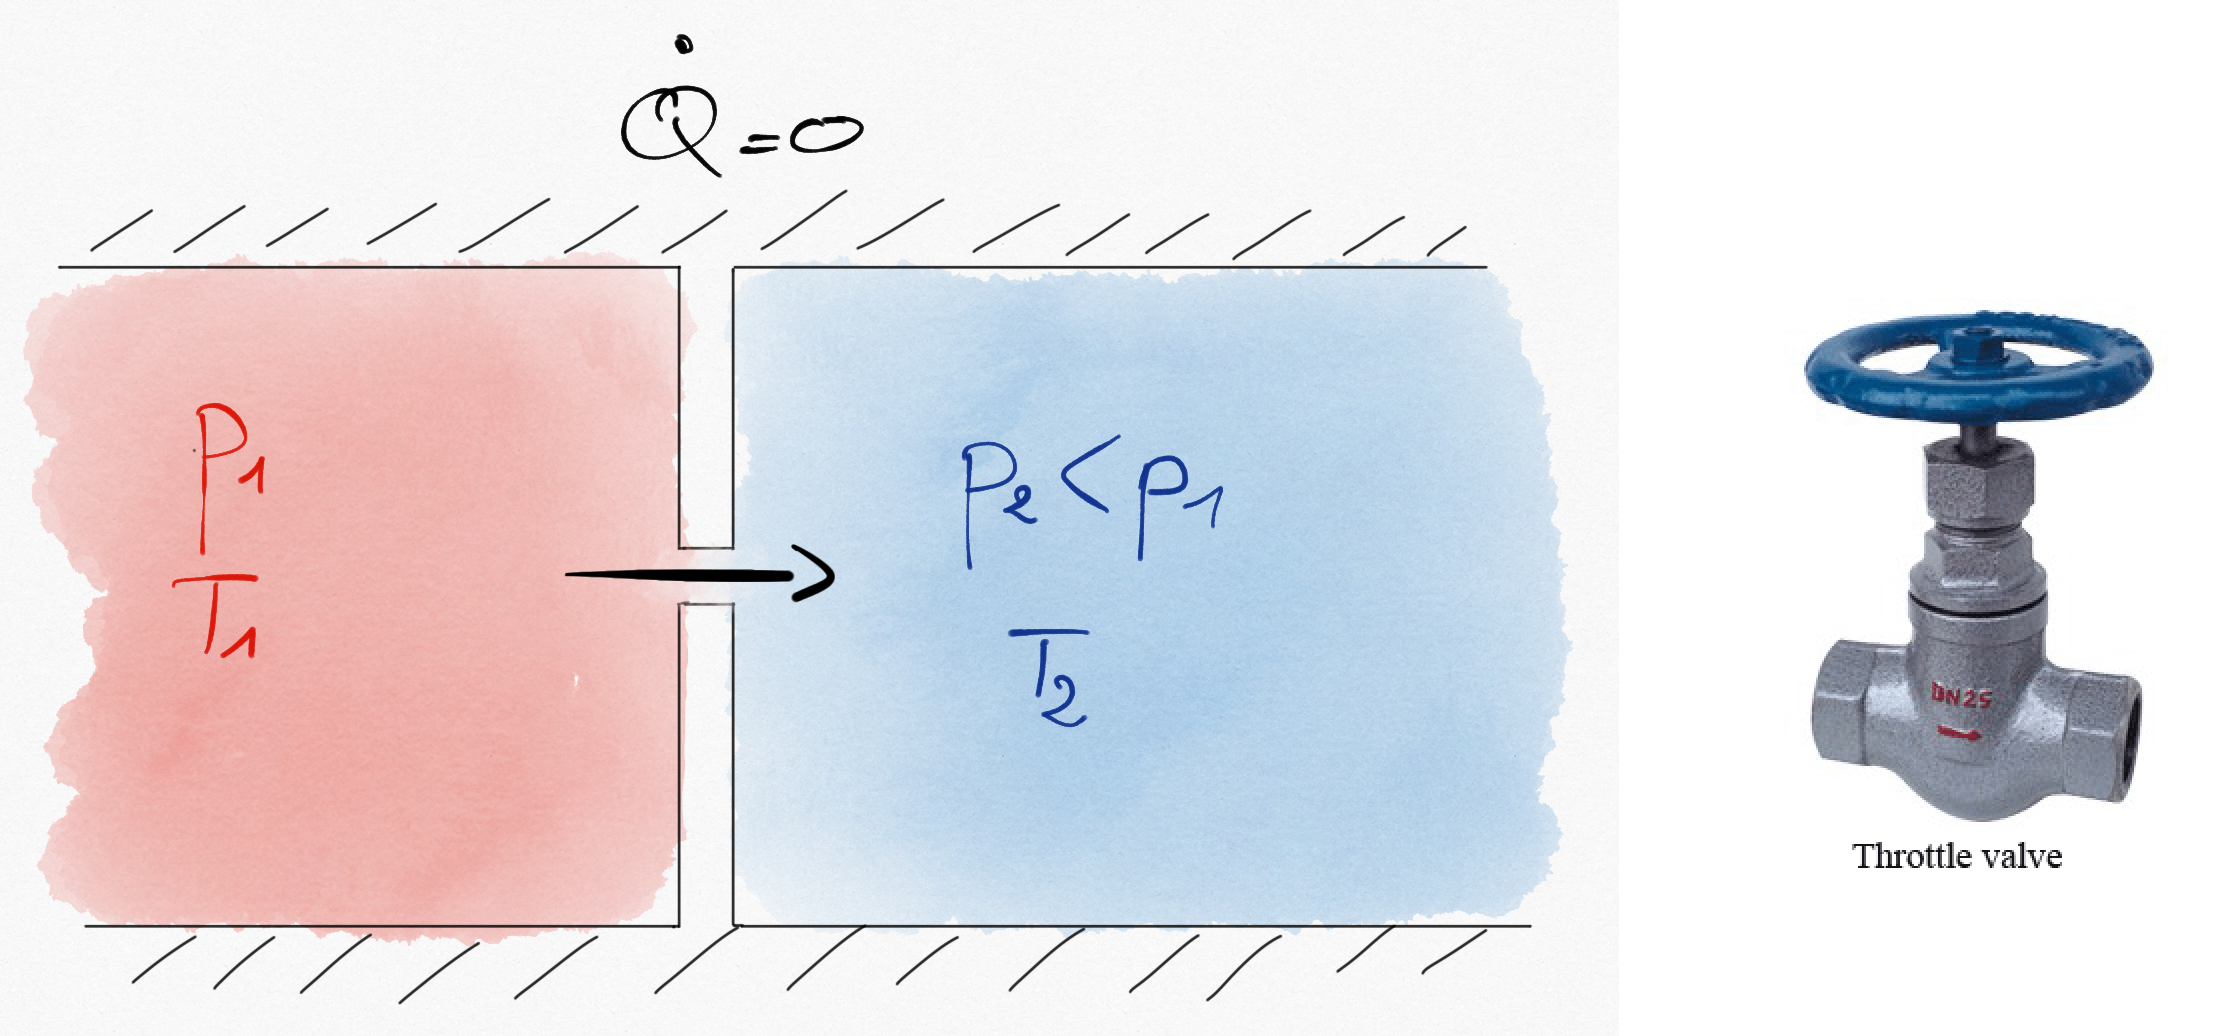 Q̇=0
p1
T1
p2<p1
T2
DN25
Throttle valve